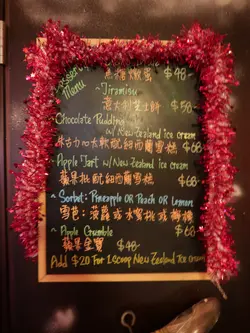 Dessert
Menu
$48
~Tiramisu
意大利芝士餅 $58
Chocolate Pudding
w/ New Zealand ice cream
朱古力心太軟配紐西蘭雪糕 $68
Apple Tart w/ New Zealand ice cream
蘋果批配紐西蘭雪糕 $68
~ Sorbet: Pineapple OR Peach OR Lemon
雪芭: 菠蘿或水蜜桃或檸檬 $68
~ Apple Crumble
蘋果金寶 $48
Add $20 For 1 Scoop New Zealand Ice Cream